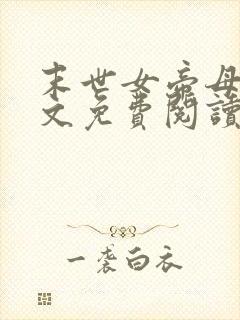 末世女帝母
文免费阅读
一袭白衣